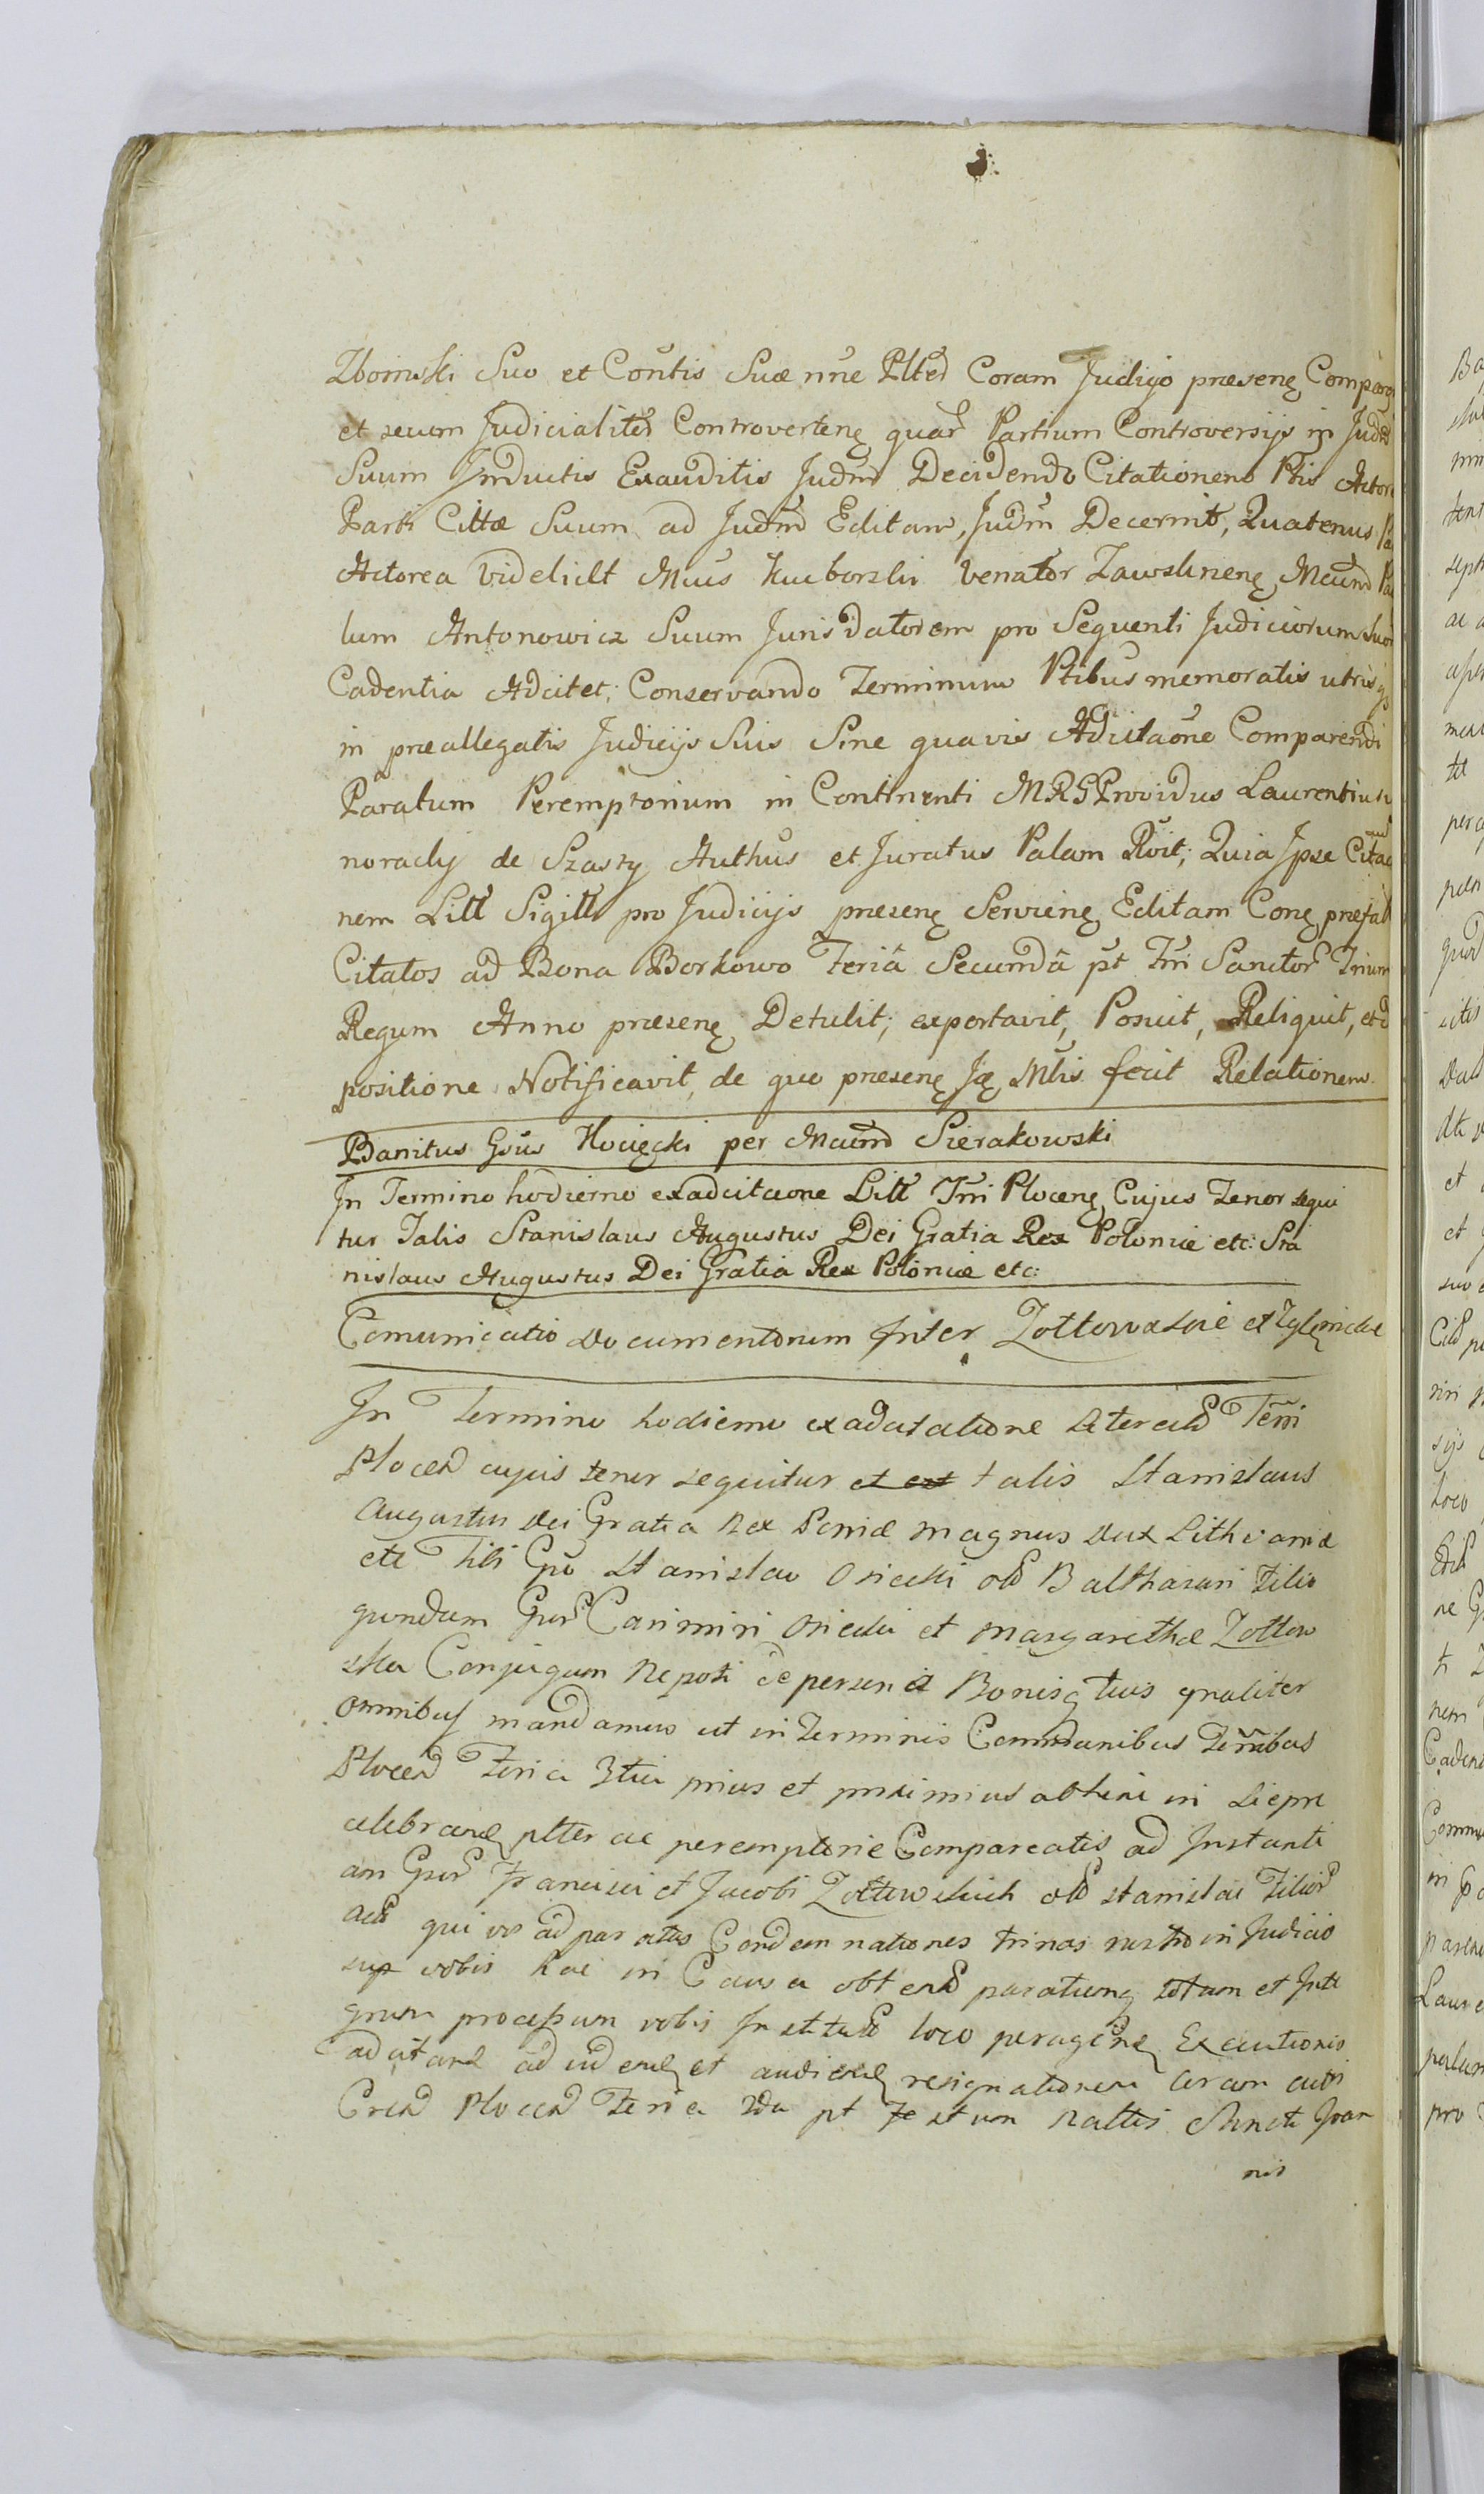 Zboinski Suo et Contis Suæ nne Plted Coram Judicio præsenę Compar
et secum Judicialiter Controvertenę quar Partium Controversijs in Jud
Suum Inductis Exauditis Judm Decidendo Citationem Ptis Actor
Parti Cittæ Suum ad Judm Editam, Judm Decernit, Quatenus Pa
Actorea Videlicet Mcus Kuczborski Venator Zawskrzenę Mcum Pa
lum Antonowicz Suum Juris datorem pro Sequenti Judiciorum Suor
Cadentia Adcitet; Conservando Terminum Ptibus memoratis utrisq
in præallegatis Judicijs Suis Sine quavis Adcitaone Comparendi
Paratum Peremptorium in Continenti MRSProvidus Laurentius
noracly de Szasty Authus et Juratus Palam Rvit; Quia Ipse Citao
nem Litt Sigill pro Judicijs præsenę Servienę Editam Conę præfat
Citatos ad Bona Borkowo Feriâ Secundâ pt Fm Sanctor Trium
Regum Anno præsenę Detulit; exportavit, Posuit, Reliquit, et d
positione Notificavit, de quo præsenę Ję Mtis fecit Relationem
Banitus Gsus Kocięcki per Mcum Sierakowski
In Termino hodierno exadcitaone Litt Tri Plocenę Cujus Tenor sequi
tur Talis Stanislaus Augustus Dei Gratia Rex Poloniæ etc: Sta
nislaus Augustus Dei Gratia Rex Poloniæ etc:
Comunicatio Documentorum Inter Zottowskie et
In Termino hodierno exadcitatione Terri
Plocen cujus tenor sequitur et est talis Stanislaus
Augustus Dei Gratia Rex Poniæ Magnus Dux Lithvaniæ
etc Tibi Gso Stanislao Osiecki olo Balthasari Filio
quondam Gsor Casimiri Osiecki et Margarethæ Zottow
ska Conjugum Nepoti de personis Bonisq tuis qnaliter
Omnibus mandamus ut in Terminis Communibus Terribus
Plocen Feria 3tia prius et proximius abhinc in Siepre
celebranę plter ac peremptorie Compareatis ad Instanti
am Gsor Francisci et Jacobi Zottowskich olo Stanislai Filior
Act qui vos ad paratas Condemnationes trinas nostro in Judicio
sup vobis hac in Causa obten paratumq totam et Inte
grum processum vobis Institut loco peragenę Executionis
adcitant ad videnę et audienę resignationem Coram
Plocen Feria 2da pt Festum Nattis Sancti Joan
nis